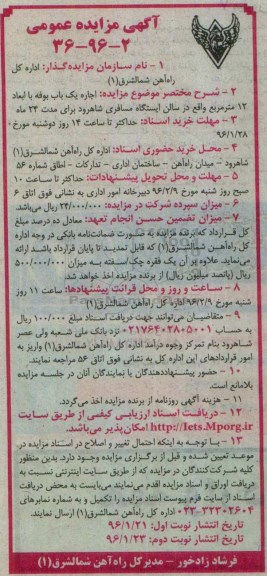 آگهی مزایده عمومی
۳۶-۹۶-۲
۱ - نام سازمان مزایده‌گذار: اداره کل
راه‌آهن شمالشرق(۱)
۲ - شرح مختصر موضوع مزایده: اجاره یک باب بوفه با ابعاد
۱۲ مترمربع واقع در سالن ایستگاه مسافری شاهرود برای مدت ۲۴ ماه
۳ - مهلت خرید اسناد: حداکثر تا ساعت ۱۴ روز دوشنبه مورخ
۹۶/۱/۲۸
۴ - محل خرید حضوری اسناد: اداره کل راه‌آهن شمالشرق(۱)
شاهرود - میدان راه‌آهن - ساختمان اداری - تدارکات - اطاق شماره ۵۶
۵ - مهلت و محل تحویل پیشنهادات: حداکثر تا ساعت ۱۰
صبح روز شنبه مورخ ۹۶/۲/۹ دبیرخانه امور اداری به نشانی فوق اتاق ۶
۶ - میزان سپرده شرکت در مزایده: ۲۴/۰۰۰/۰۰۰ ریال می‌باشد.
۷ - میزان تضمین حسن انجام تعهد: معادل ده درصد مبلغ
کل قرارداد که برنده مزایده به صورت ضمانت‌نامه بانکی در وجه اداره
کل راه‌آهن شمالشرق(۱) که قابل تمدید تا پایان قرارداد باشد ارائه
می‌نماید. علاوه بر آن یک فقره چک سفته به میزان ۵۰۰/۰۰۰/۰۰۰
ریال (پانصد میلیون ریال) از برنده مزایده اخذ خواهد شد.
۸ - ساعت و روز و محل قرائت پیشنهادها: ساعت ۱۱ روز
شنبه مورخ ۹۶/۲/۹ اداره کل راه‌آهن شمالشرق(۱)
۹ - متقاضیان می‌توانند جهت دریافت اسناد مبلغ ۱۰۰/۰۰۰ ریال
به حساب ۰۲۱۷۶۴۰۲۸۰۵۰۰۱ نزد بانک ملی شعبه ولی عصر
شاهرود بنام تمرکز وجوه درآمد اداره کل راه‌آهن شمالشرق(۱) واریز به
امور قراردادهای این اداره کل به نشانی فوق اتاق ۵۶ مراجعه نمایند.
۱۰ - حضور پیشنهاددهندگان یا نمایندگان آنان در جلسه مزایده
بلامانع است.
۱۱ - هزینه آگهی روزنامه از برنده مزایده اخذ می‌گردد.
۱۲ - دریافت اسناد ارزیابی کیفی از طریق سایت
http://Iets.Mporg.ir امکان‌پذیر می‌باشد.
۱۳ - با توجه به اینکه احتمال تغییر و اصلاح در اسناد مزایده در
موعد تعیین شده و قبل از برگزاری مزایده وجود دارد. بدین منظور
کلیه شرکت‌کنندگان در مزایده که از طریق سایت اینترنتی نسبت به
دریافت اوراق و اسناد مزایده اقدم می‌نمایند می‌بایست به محض دریافت
اسناد از سایت فرم پیوست اسناد مزایده را تکمیل و به شماره نمابرهای
۰۲۳-۳۲۳۰۲۶۰۴ اداره کل راه‌آهن شمالشرق(۱) ارسال نمایند.
تاریخ انتشار نوبت اول: ۹۶/۱/۲۱
تاریخ انتشار نوبت دوم: ۹۶/۱/۲۳
فرشاد زادخور - مدیرکل راه‌آهن شمالشرق(۱)